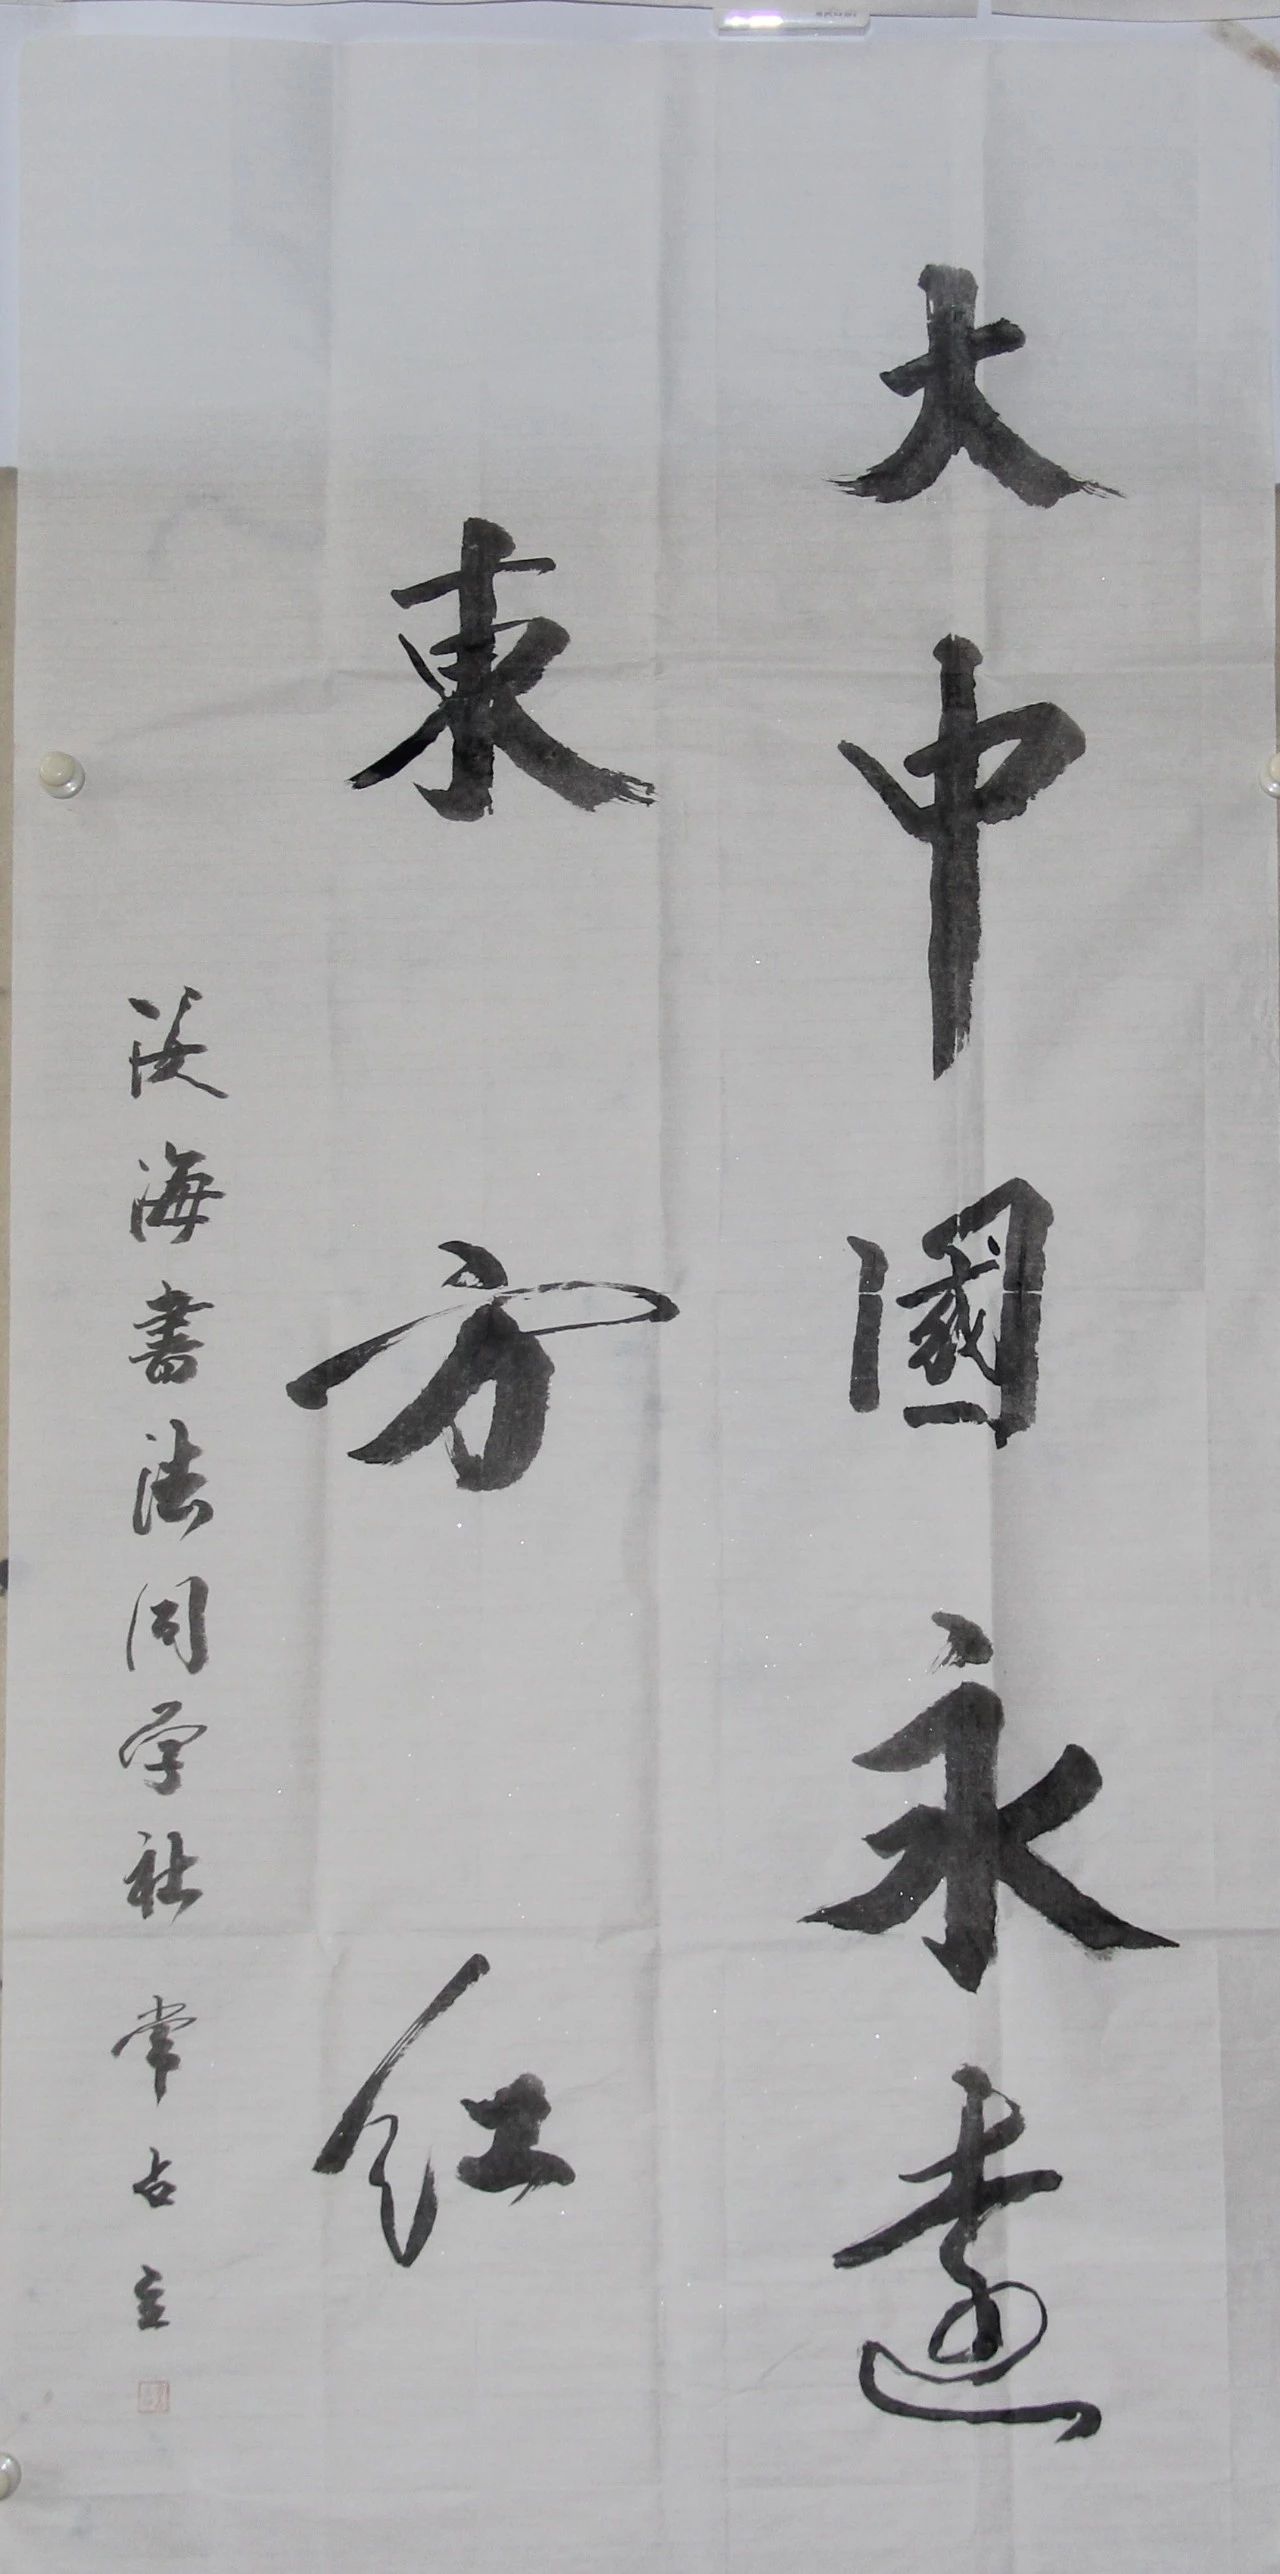 大中國永遠
東方红
海書法同学社 常占立